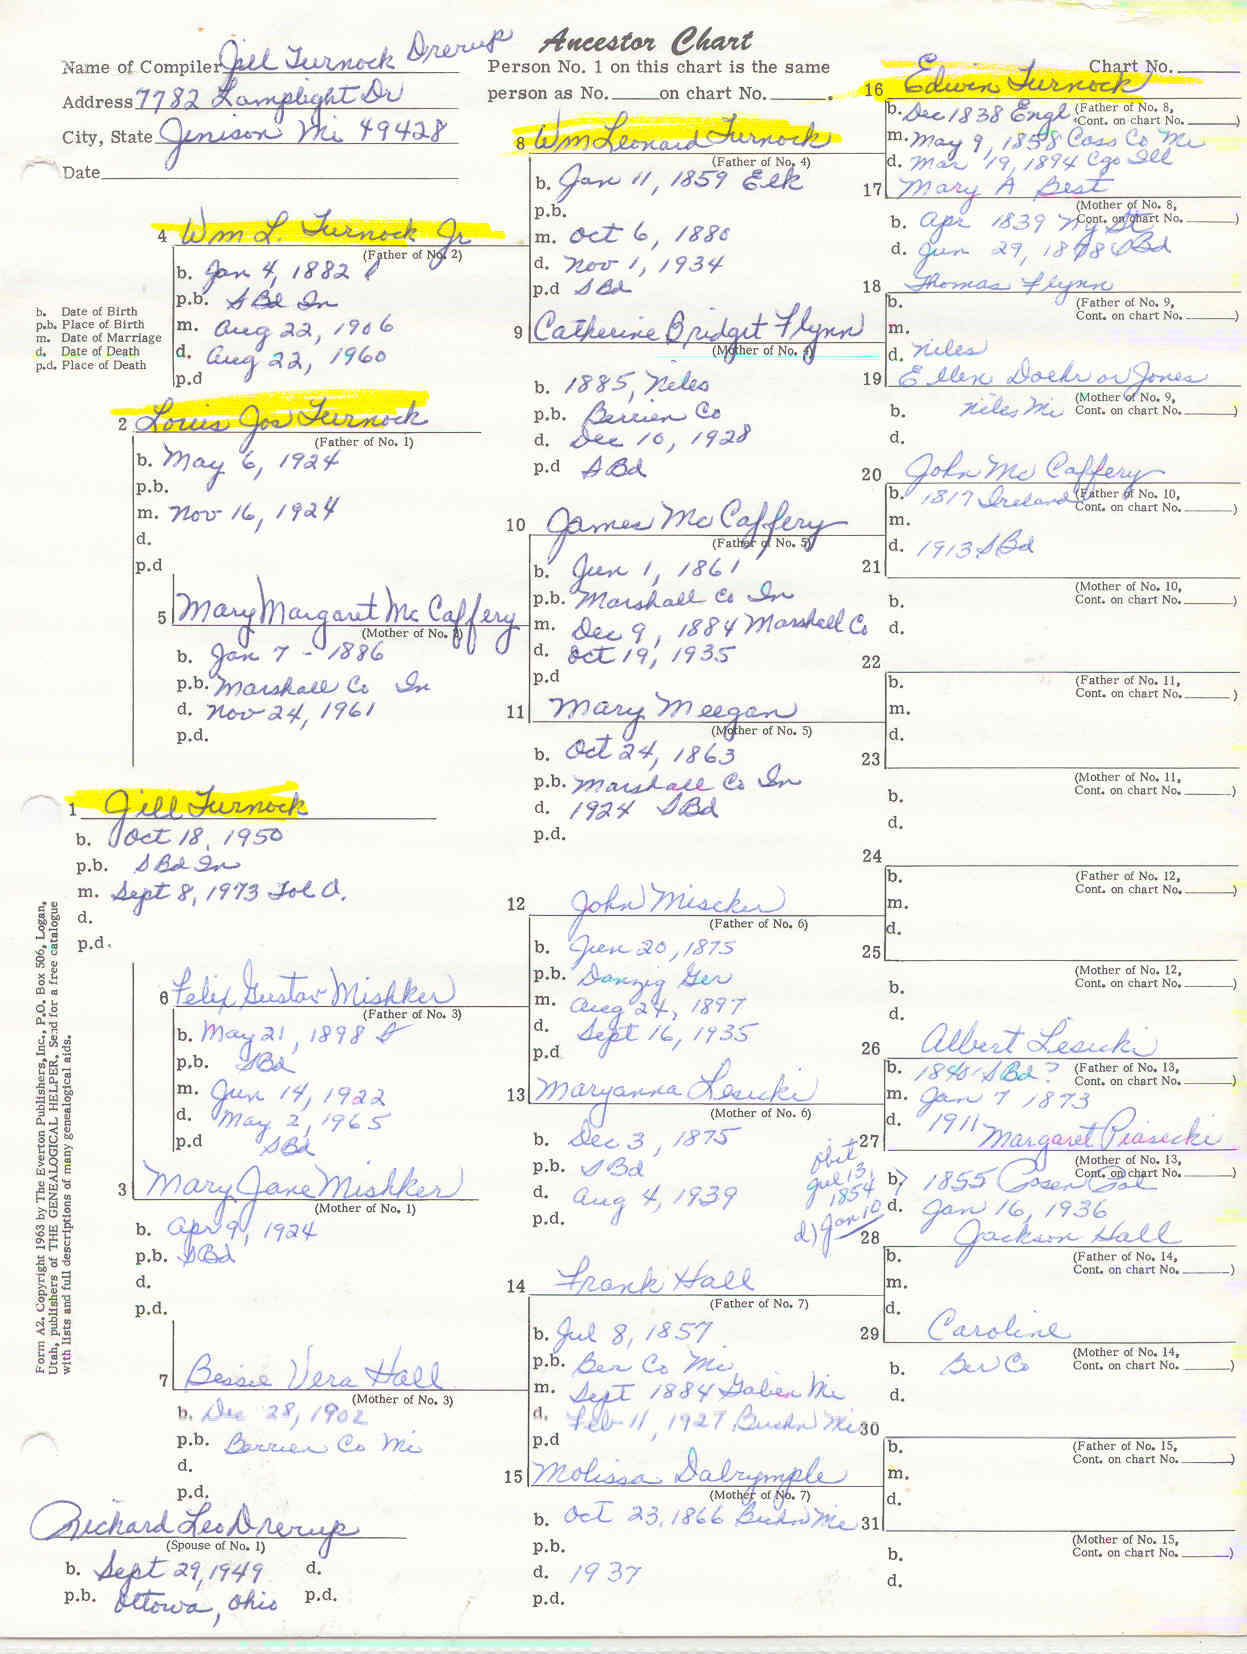 Ancestor Chart
Name of Compiler Jill Turnock Drerup
Address 7782 Lamplight Dr
City, State Jenison Mi 49428
Date
Person No. 1 on this chart is the same
person as No. on chart No. .
Chart No.
b. Date of Birth
p.b. Place of Birth
m. Date of Marriage
d. Date of Death
p.d. Place of Death
1 Jill Turnock
b. Oct 18, 1950
p.b. S Bd In
m. Sept 8, 1973 Tol O.
d.
p.d.
2 Louis Jos Turnock
(Father of No. 1)
b. May 6, 1924
p.b.
m. Nov 16, 1924
d.
p.d
3 Mary Jane Mishker
(Mother of No. 1)
b. Apr 9, 1924
p.b. SBd
d.
p.d.
4 Wm L. Turnock Jr
(Father of No. 2)
b. Jan 4, 1882
p.b. S Bd In
m. Aug 22, 1906
d. Aug 22, 1960
p.d
5 Mary Margaret Mc Caffery
(Mother of No. 2)
b. Jan 7 - 1886
p.b. Marshall Co In
d. Nov 24, 1961
p.d.
6 Felix Gustav Mishker
(Father of No. 3)
b. May 21, 1898
p.b. SBd
m. Jun 14, 1922
d. May 2, 1965
p.d SBd
7 Bessie Vera Hall
(Mother of No. 3)
b. Dec 28, 1902
p.b. Berrien Co Mi
d.
p.d.
Richard Leo Drerup
(Spouse of No. 1)
b. Sept 29, 1949 d.
p.b. Ottowa, Ohio p.d.
Form A2. Copyright 1963 by The Everton Publishers, Inc., P.O. Box 506, Logan,
Utah, publishers of THE GENEALOGICAL HELPER. Send for a free catalogue
with lists and full descriptions of many genealogical aids.
8 Wm Leonard Turnock
(Father of No. 4)
b. Jan 11, 1859 Elk
p.b.
m. Oct 6, 1880
d. Nov 1, 1934
p.d SBd
9 Catherine Bridget Flynn
(Mother of No. 4)
b. 1885, Niles
p.b. Berrien Co
d. Dec 10, 1928
p.d SBd
10 James Mc Caffery
(Father of No. 5)
b. Jun 1, 1861
p.b. Marshall Co In
m. Dec 9, 1884 Marshall Co
d. Oct 19, 1935
p.d
11 Mary Meegan
(Mother of No. 5)
b. Oct 24, 1863
p.b. Marshall Co In
d. 1924 SBd
p.d.
12 John Miscker
(Father of No. 6)
b. Jun 20, 1875
p.b. Danzig Ger
m. Aug 24, 1897
d. Sept 16, 1935
p.d
13 Maryanna Lesicki
(Mother of No. 6)
b. Dec 3, 1875
p.b. SBd
d. Aug 4, 1939
p.d.
14 Frank Hall
(Father of No. 7)
b. Jul 8, 1857
p.b. Ber Co Mi
m. Sept 1884 Galien Mi
d. Feb 11, 1927 Buchn Mi
p.d
15 Molissa Dalrymple
(Mother of No. 7)
b. Oct 23, 1866 Buchn Mi
p.b.
d. 1937
p.d.
16 Edwin Turnock
b. Dec 1838 Engl (Father of No. 8,
Cont. on chart No. )
m. May 9, 1858 Cass Co Mi
d. Mar 19, 1894 Cgo Ill
17 Mary A Best
(Mother of No. 8,
b. Apr 1839 Cont. on chart No. )
d. Jun 29, SBd
18 Thomas Flynn
b. (Father of No. 9,
Cont. on chart No. )
m.
d. Niles
19 Ellen Doehr or Jones
(Mother of No. 9,
b. Niles Mi Cont. on chart No. )
d.
20 John Mc Caffery
b. 1817 Ireland (Father of No. 10,
Cont. on chart No. )
m.
d. 1913 SBd
21
(Mother of No. 10,
b. Cont. on chart No. )
d.
22
b. (Father of No. 11,
Cont. on chart No. )
m.
d.
23
(Mother of No. 11,
b. Cont. on chart No. )
d.
24
b. (Father of No. 12,
Cont. on chart No. )
m.
d.
25
(Mother of No. 12,
b. Cont. on chart No. )
d.
26 Albert Lesicki
b. SBd? (Father of No. 13,
Cont. on chart No. )
m. Jan 7 1873
d. 1911
27 Margaret Piasecki
(Mother of No. 13,
b. 1855 Posen Pol Cont. on chart No. )
d. Jan 16, 1936
obit
Jul 13,
1854
d) Jan 10
28 Jackson Hall
b. (Father of No. 14,
Cont. on chart No. )
m.
d.
29 Caroline
(Mother of No. 14,
b. Ber Co Cont. on chart No. )
d.
30
b. (Father of No. 15,
Cont. on chart No. )
m.
d.
31
(Mother of No. 15,
b. Cont. on chart No. )
d.